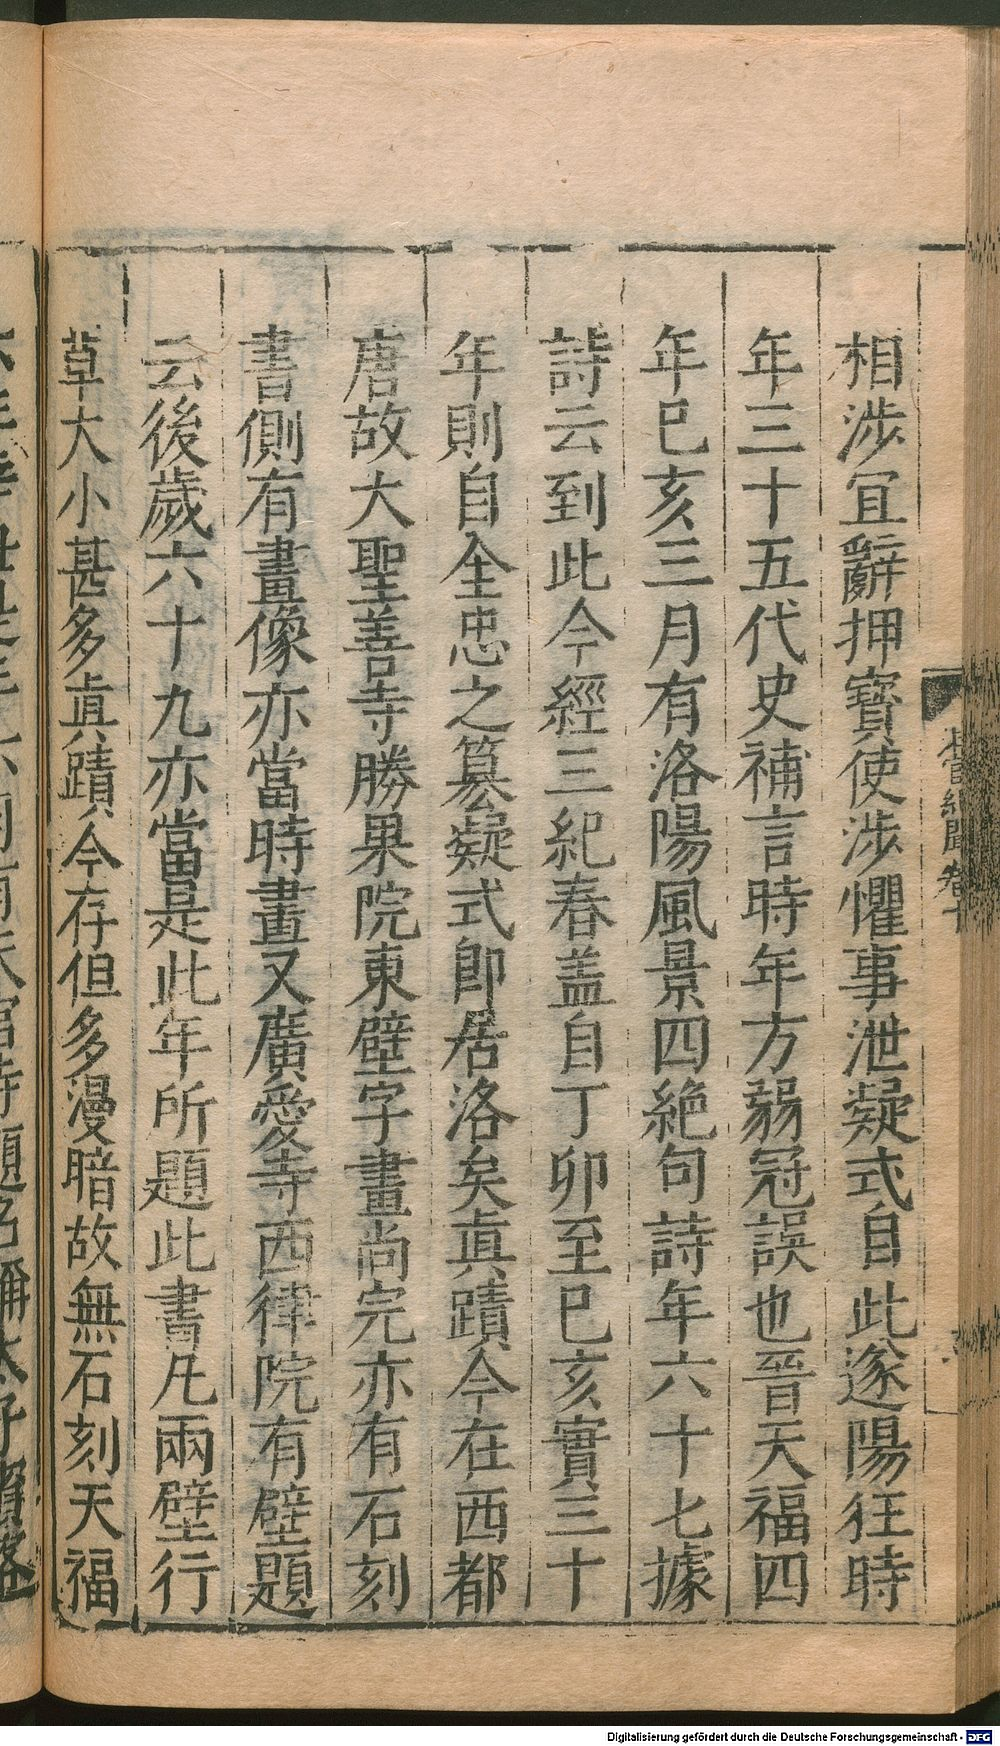 相涉宜辭押寶使涉懼事泄凝式自此遂陽狂時
年三十五代史補言時年方弱冠誤也晉天福四
年巳亥三月有洛陽風景四絶句詩年六十七據
詩云到此今經三紀春盖自丁卯至巳亥實三十
年則自全忠之篡凝式即居洛矣真蹟今在西都
唐故大聖善寺勝果院東壁字畫尚完亦有石刻
書側有畫像亦當時畫又廣愛寺西律院有壁題
云後歲六十九亦當是此年所題此書凡兩壁行
草大小甚多真蹟今存但多漫暗故無石刻天福
Digitalisierung gefördert durch die Deutsche Forschungsgemeinschaft - DFG